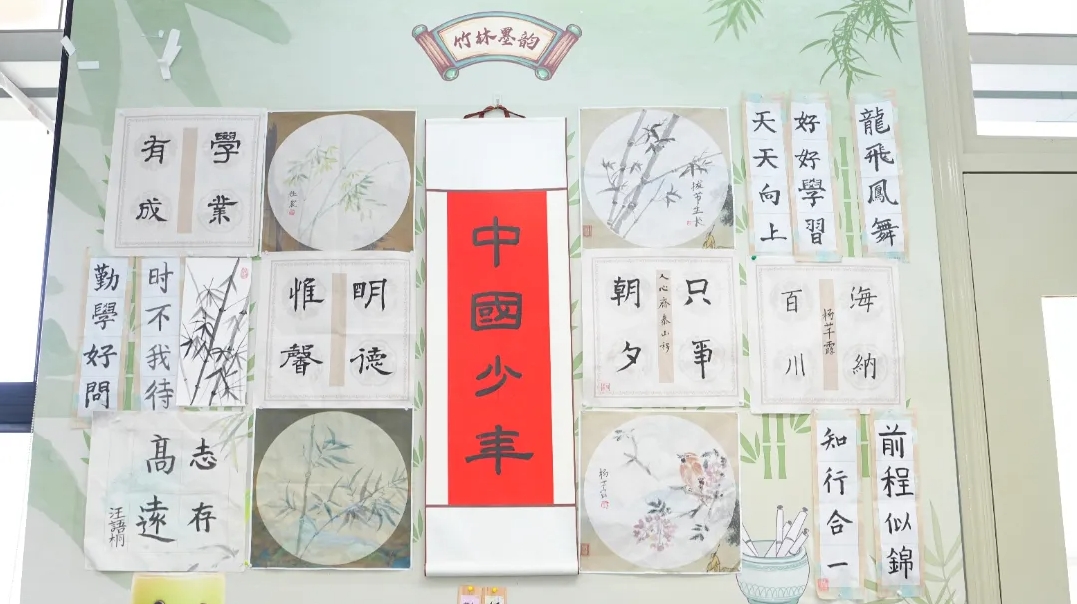 竹林墨韵
學業
有成
中國少年
拔节生长
好好學習
天天向上
龍飛鳳舞
时不我待
勤學好問
明德
惟馨
只爭
人心齐泰山移
朝夕
海納
百川
志存
髙遠
前程似錦
知行合一